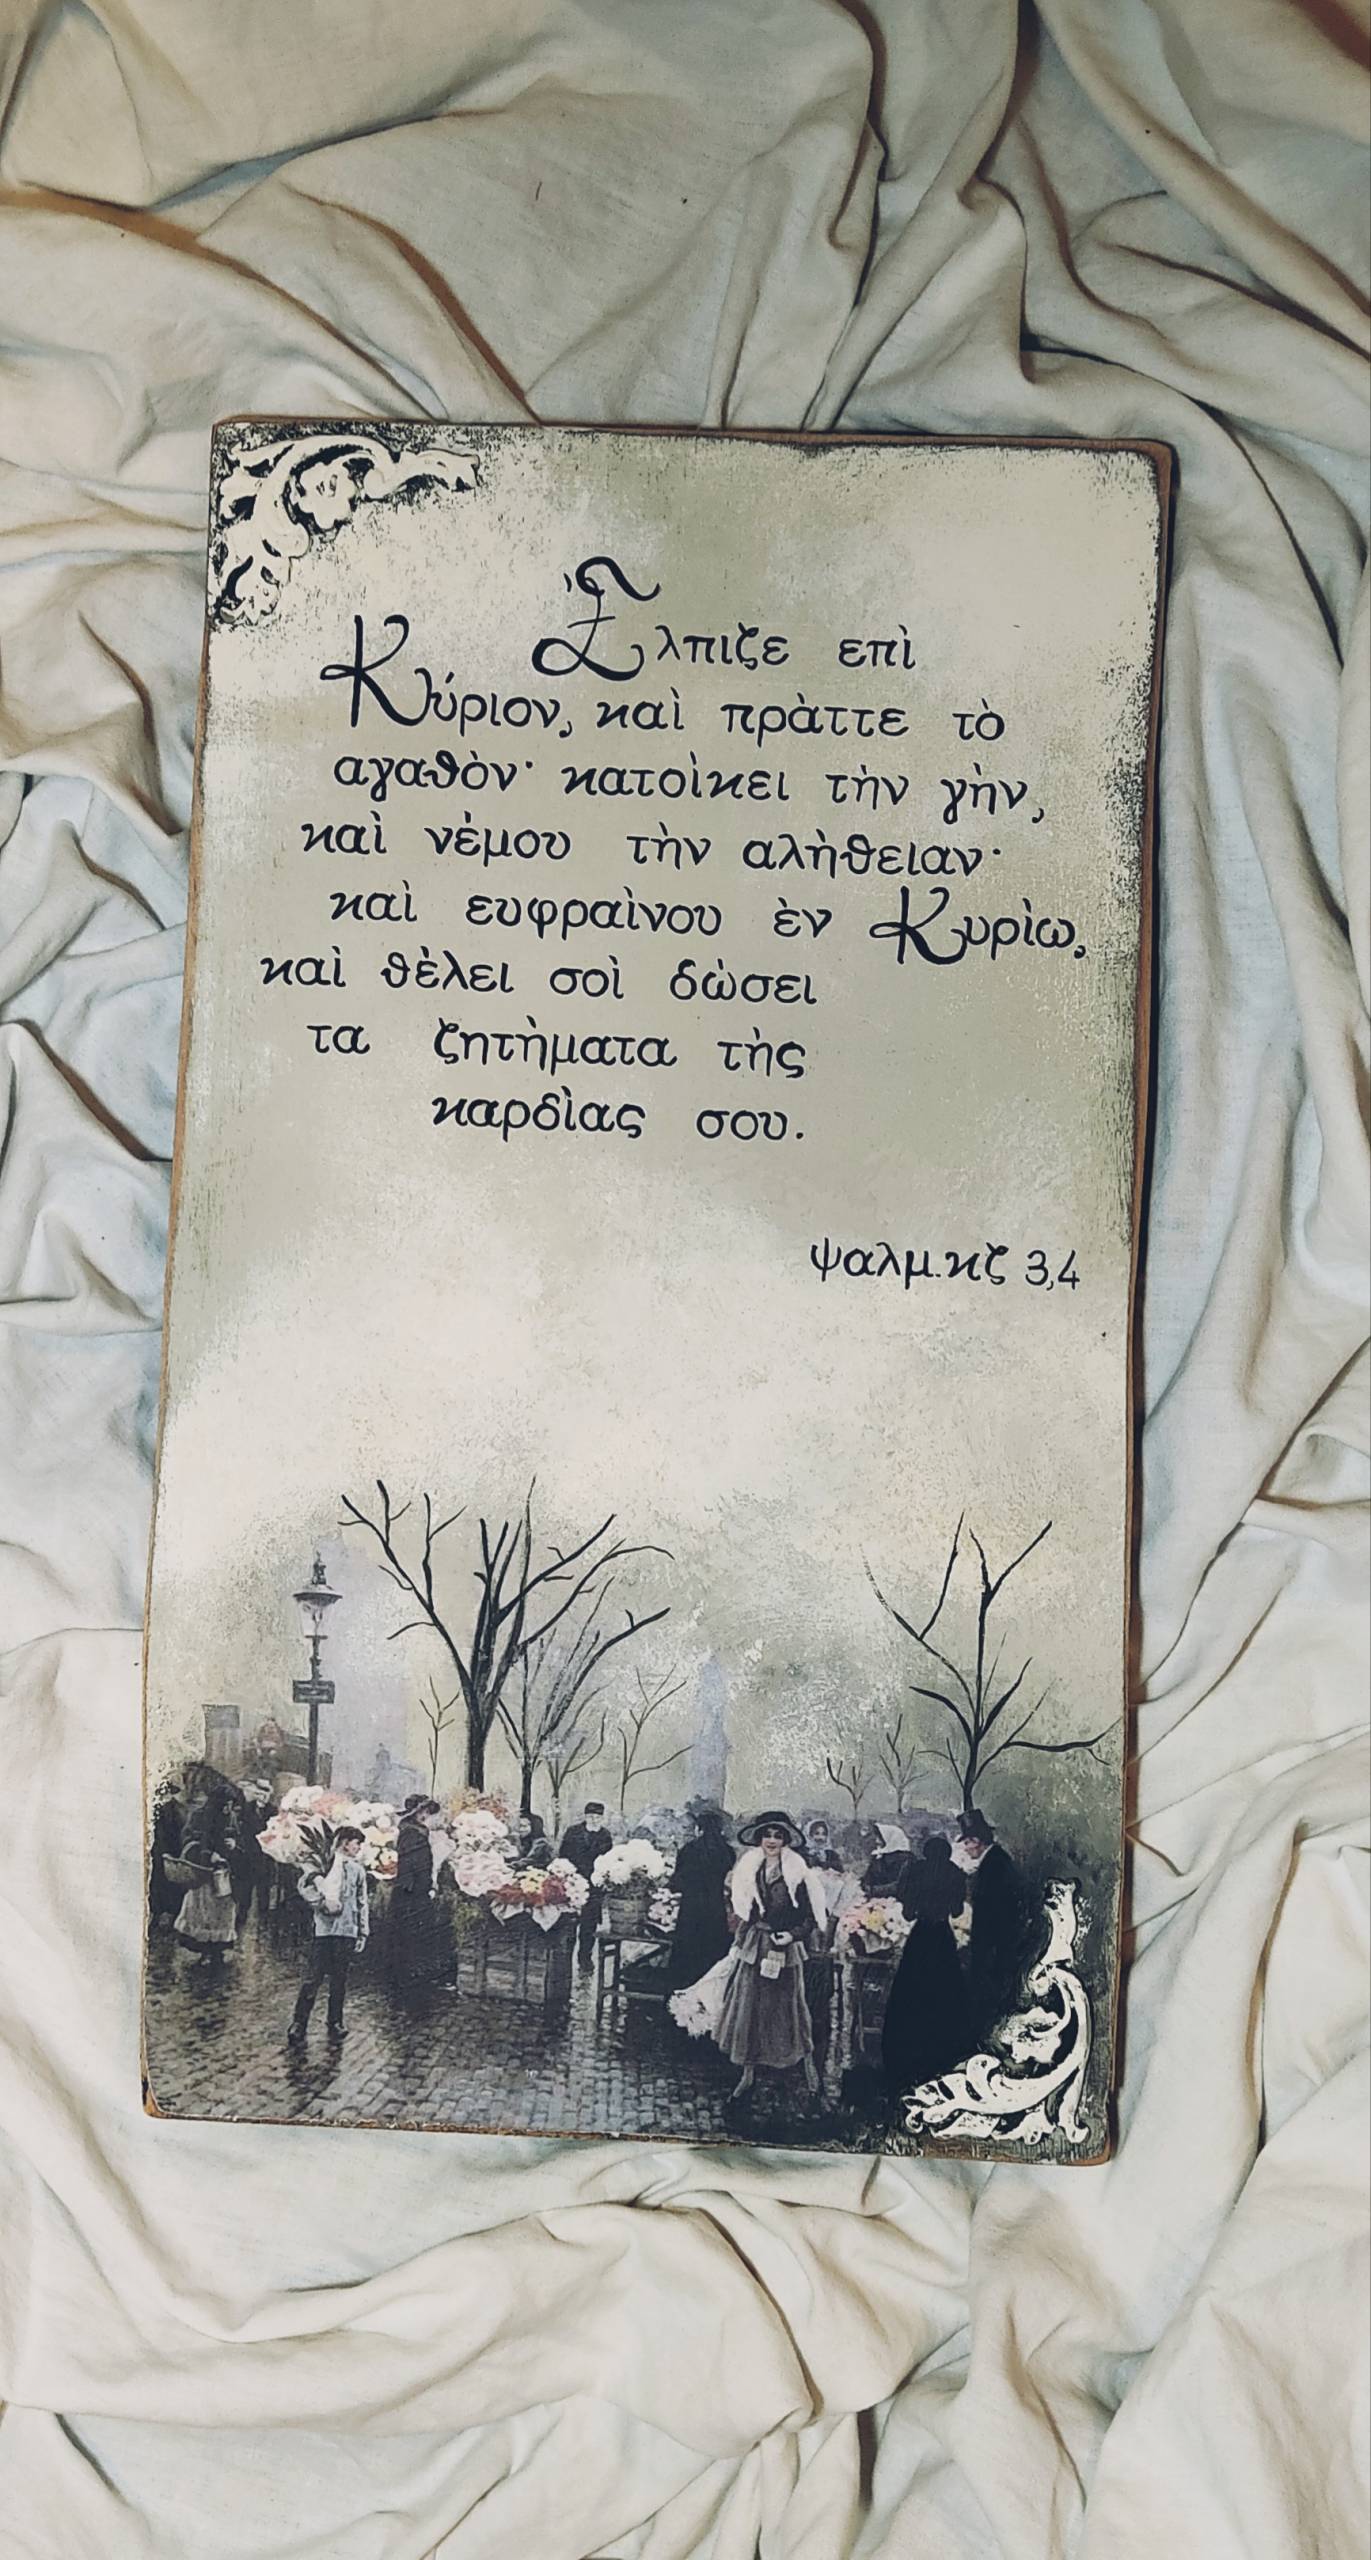 Ἔλπιζε επὶ
Κύριον, καὶ πρὰττε τὸ
αγαθὸν· κατοὶκει τὴν γὴν,
καὶ νὲμου τὴν αλὴθειαν·
καὶ ευφραὶνου ὲν Κυρὶω,
καὶ θὲλει σοὶ δὼσει
τα ζητὴματα τὴς
καρδὶας σου.
ψαλμ. κζ 3,4